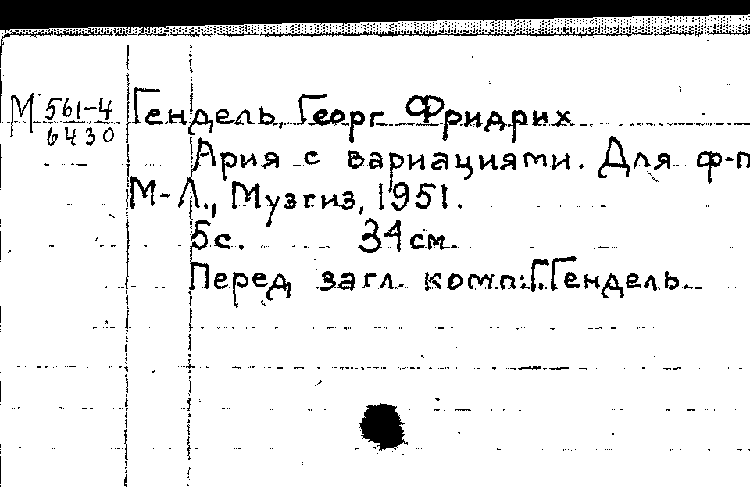 М 561-4
6430
Гендель, Георг Фридрих
Ария с вариациями. Для ф-п
М-Л., Музгиз, 1951.
5с. 34 см.
Перед загл. комп: Г. Гендель.